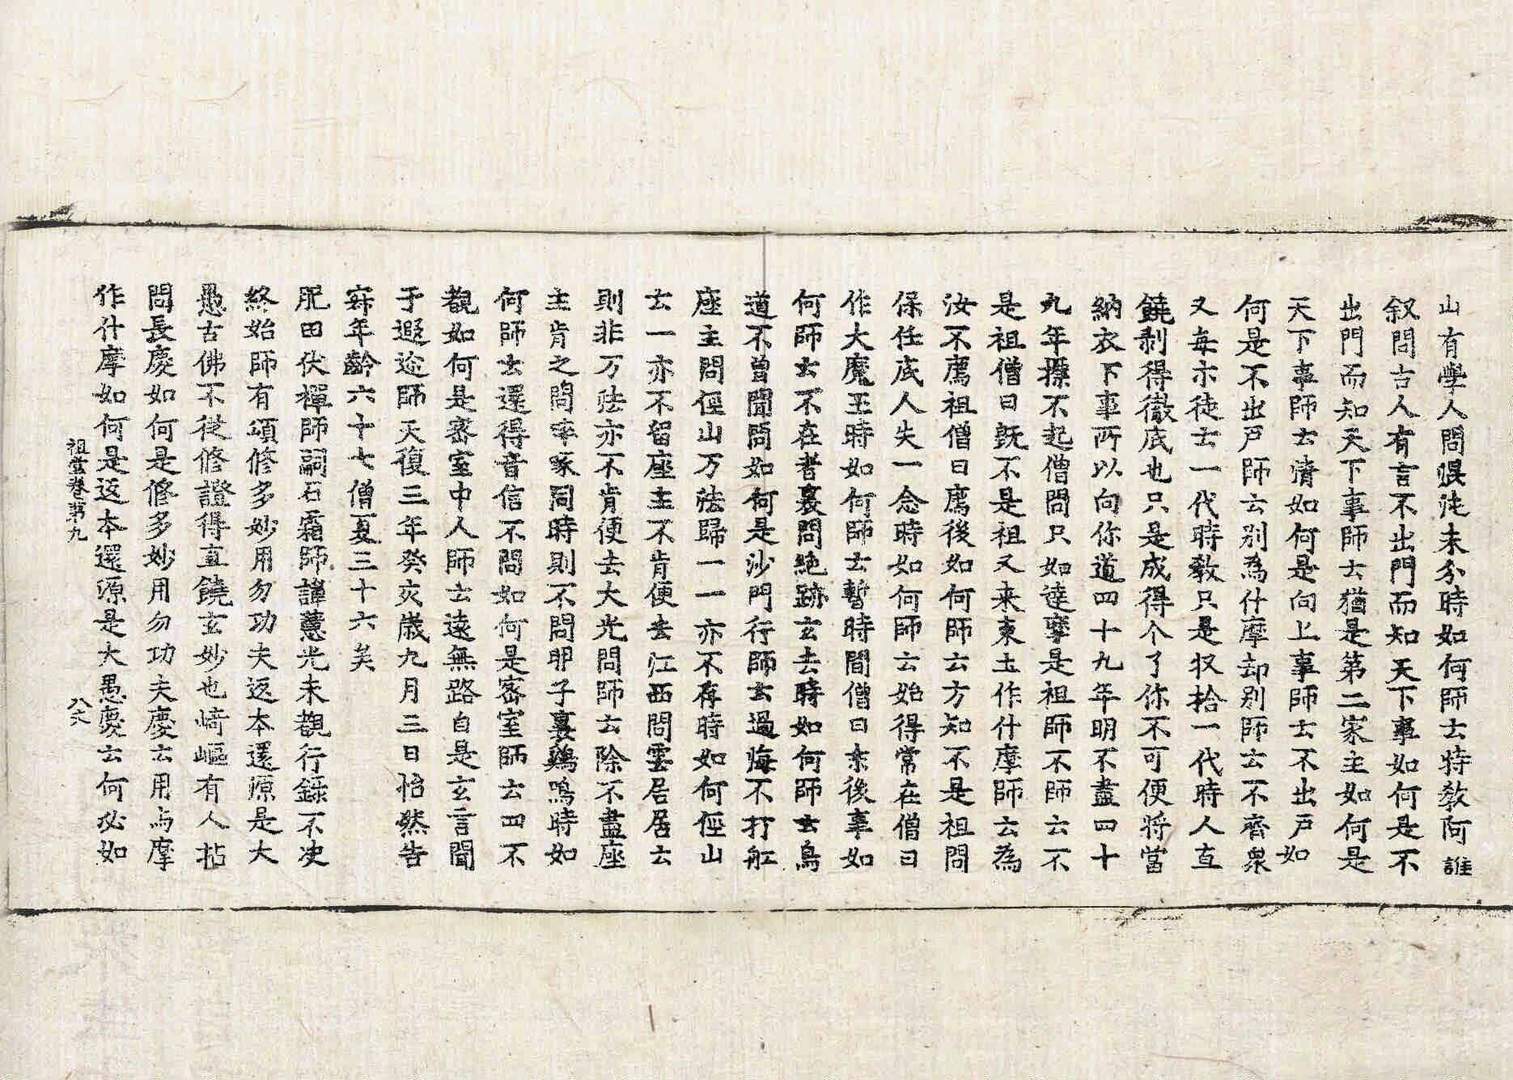 山有學人問混沌未分時如何師云特敎阿誰
叙問古人有言不出門而知天下事如何是不
出門而知天下事師云猶是第二家主如何是
天下事師云情如何是向上事師云不出戸如
何是不出戸師云別為什摩却別師云不齊衆
又每示徒云一代時敎只是収拾一代時人直
饒剥得徹底也只是成得个了你不可便將當
納衣下事所以向你道四十九年明不盡四十
九年摽不起僧問只如達摩是祖師不師云不
是祖僧曰旣不是祖又来東土作什摩師云為
汝不薦祖僧曰薦後如何師云方知不是祖問
保任底人失一念時如何師云始得常在僧曰
作大魔王時如何師云暫時閒僧曰末後事如
何師云不在者裏問絶跡玄去時如何師云鳥
道不曾聞問如何是沙門行師云過海不打舡
座主問徑山万法歸一一亦不存時如何徑山
云一亦不留座主不肯便去江西問雲居居云
則非万法亦不肯便去大光問師云除不盡座
主肯之問啐啄同時則不問卵子裏鷄鳴時如
何師云還得音信不問如何是密室師云四不
覩如何是密室中人師云遠無路自是玄言聞
于遐迩師天復三年癸亥歳九月三日怡然告
寂年齡六十七僧夏三十六矣
肥田伏禪師嗣石霜師諱慧光未覩行錄不决
終始師有頌修多妙用勿功夫返本還源是大
愚古佛不從修證得直饒玄妙也崎嶇有人拈
問長慶如何是修多妙用勿功夫慶云用与摩
作什摩如何是返本還源是大愚慶云何必如
祖堂卷第九